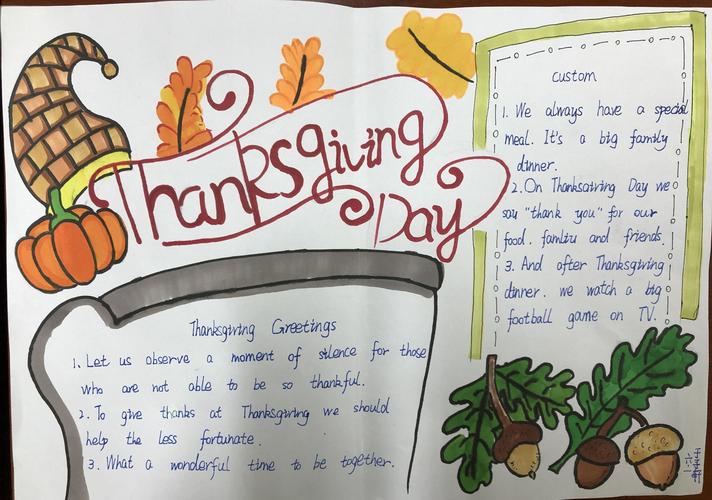 Thanksgiving
Day
custom
1. We always have a special
meal. It's a big family
dinner.
2. On Thanksgiving Day we
say "thank you" for our
food. famliu and friends.
3. And after Thanksgiving
dinner. we watch a big
football game on TV.
Thanksgiving Greetings
1. Let us observe a moment of silence for those
who are not able to be so thankful.
2. To give thanks at Thanksgiving we should
help the less fortunate.
3. What a wonderful time to be together.